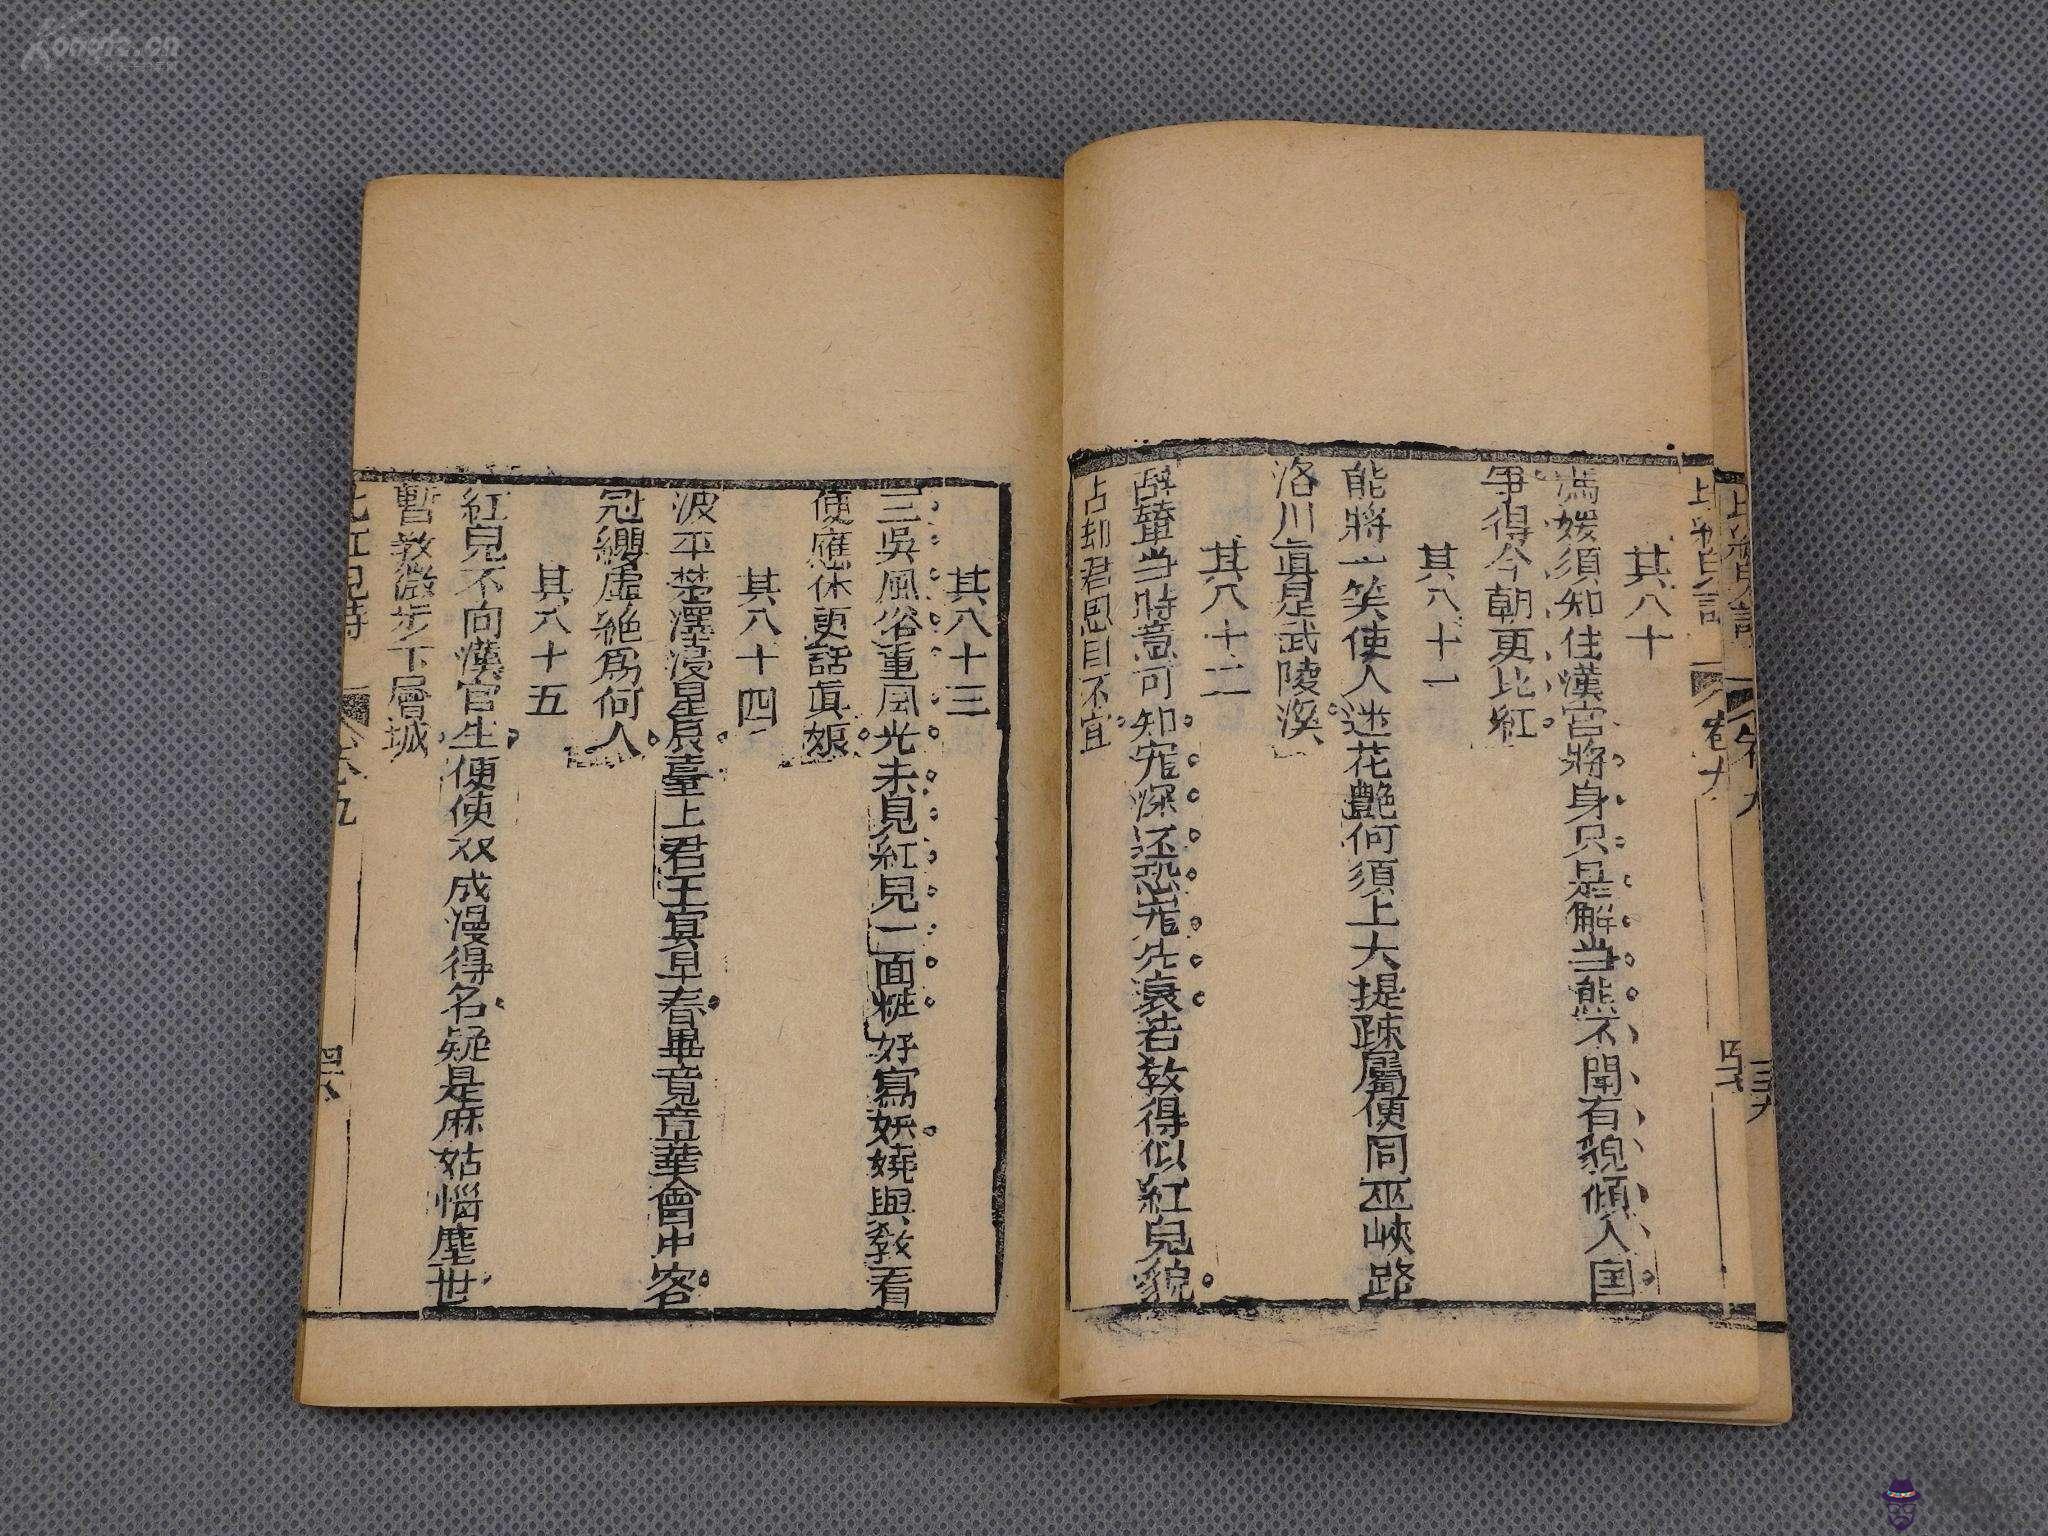 其八十
馮媛須知住漢宮將身只是解当熊不聞有貌傾人国
爭得今朝更比紅
其八十一
能將一笑使人迷花艶何須上大提疎属便同巫峽路
洛川眞是武陵溪
其八十二
辭輦当時意可知寵深还恐寵先衰若敎得似紅兒貌
占却君恩自不宜
其八十三
三吳風俗重風光未見紅兒一面粧好寫妖嬈與敎看
便應休更話眞娘
其八十四
波平楚澤浸星辰臺上君王宴早春畢竟章華會中客
冠纓虛絶爲何人
其八十五
紅兒不向漢宮生便使双成漫得名疑是麻姑惱塵世
暫敎微步下層城
比紅兒詩
卷九
Kongfz.cn